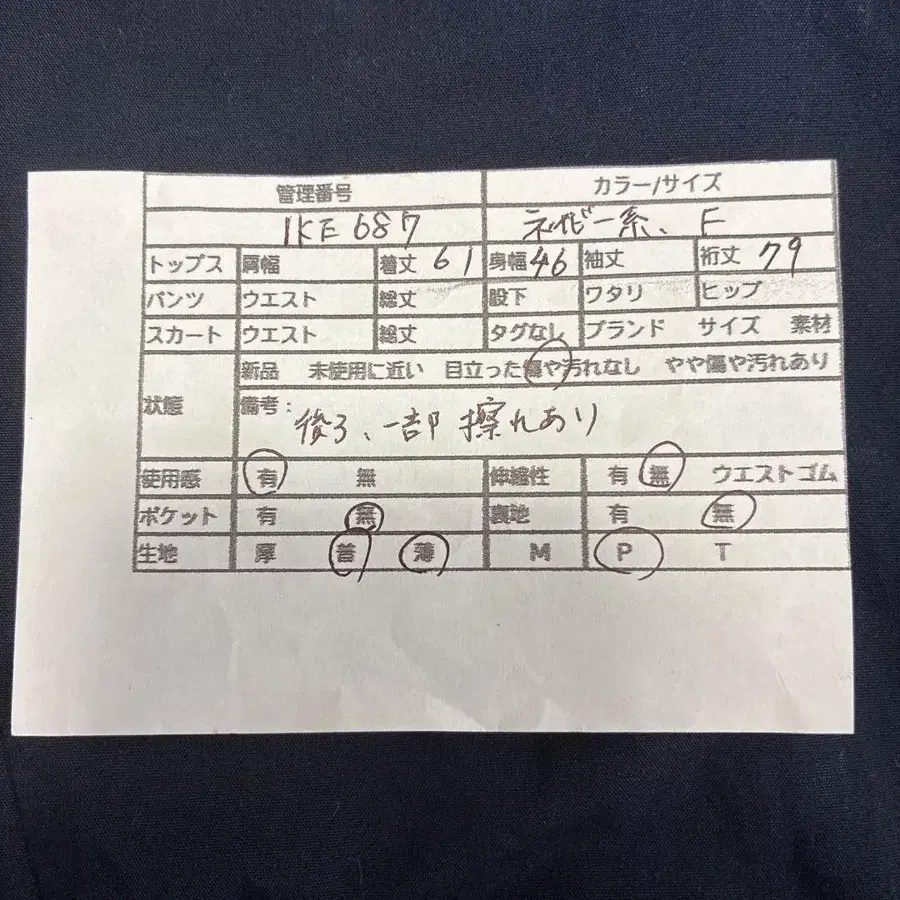 管理番号 カラー/サイズ
IKE687 ネイビー系、F
トップス 肩幅 着丈 61 身幅 46 袖丈 裄丈 79
パンツ ウエスト 総丈 股下 ワタリ ヒップ
スカート ウエスト 総丈 タグなし ブランド サイズ 素材
状態 新品 未使用に近い 目立った傷や汚れなし やや傷や汚れあり
備考:
後ろ、一部擦れあり
使用感 有 無 伸縮性 有 無 ウエストゴム
ポケット 有 無 裏地 有 無
生地 厚 普 薄 M P T